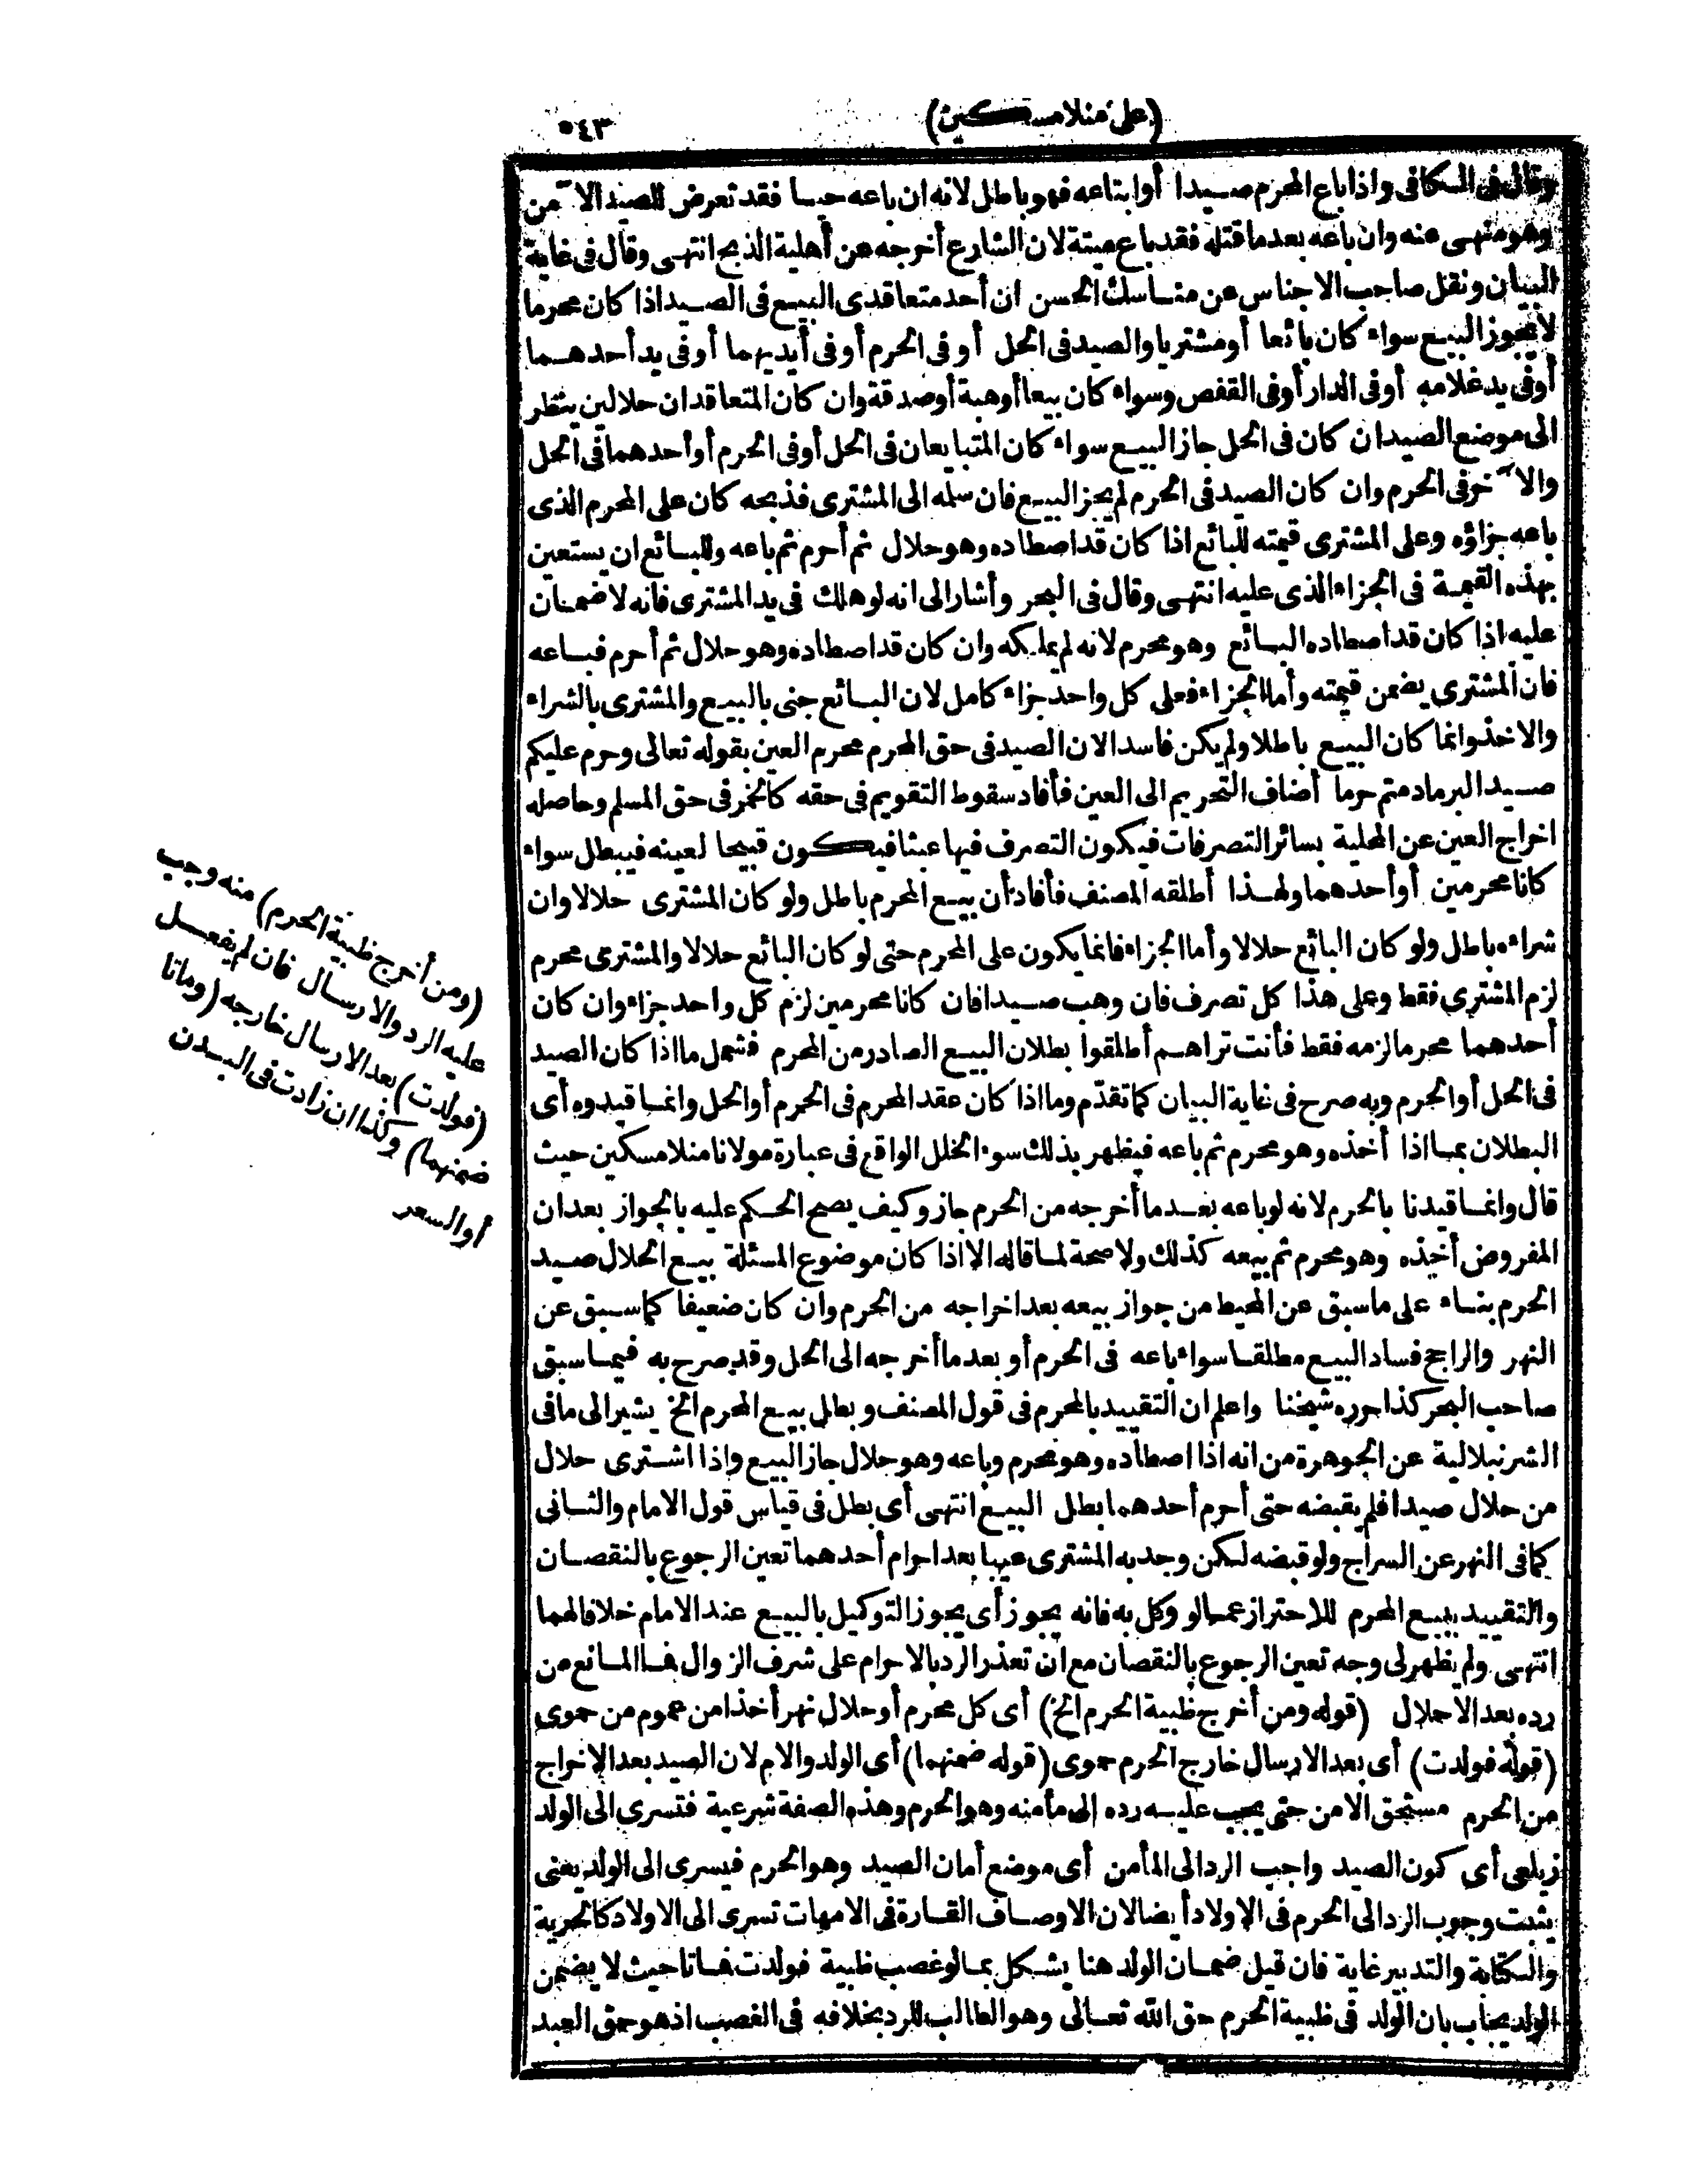 (على منلا مسكين)
٥٤٣
وقال فى الكافى واذا باع المحرم صيدا أو ابتاعه فهو باطل لانه ان باعه حيا فقد تعرض للصيد الآمن
وهو منهى عنه وان باعه بعد ما قتله فقد باع ميتة لان الشارع أخرجه عن أهلية الذبح انتهى وقال فى غاية
البيان ونقل صاحب الاجناس عن مناسك الحسن ان أحد متعاقدى البيع فى الصيد اذا كان محرما
لا يجوز البيع سواء كان بائعا أو مشتريا والصيد فى الحل أو فى الحرم أو فى أيديهما أو فى يد أحدهما
أو فى يد غلامه أو فى الدار أو فى القفص وسواء كان بيعا أو هبة أو صدقة وان كان المتعاقدان حلالين ينظر
الى موضع الصيد ان كان فى الحل جاز البيع سواء كان المتبايعان فى الحل أو فى الحرم أو أحدهما فى الحل
والآخر فى الحرم وان كان الصيد فى الحرم لم يجز البيع فان سلمه الى المشترى فذبحه كان على المحرم الذى
باعه جزاؤه وعلى المشترى قيمته للبائع اذا كان قد اصطاده وهو حلال ثم أحرم ثم باعه وللبائع ان يستعين
بهذه القيمة فى الجزاء الذى عليه انتهى وقال فى البحر وأشار الى انه لو هلك فى يد المشترى فانه لا ضمان
عليه اذا كان قد اصطاده البائع وهو محرم لانه لم يملكه وان كان قد اصطاده وهو حلال ثم أحرم فباعه
فان المشترى يضمن قيمته وأما الجزاء فعلى كل واحد جزاء كامل لان البائع جنى بالبيع والمشترى بالشراء
والاخذ وانما كان البيع باطلا ولم يكن فاسدا لان الصيد فى حق المحرم محرم العين بقوله تعالى وحرم عليكم
صيد البر مادمتم حرما أضاف التحريم الى العين فأفاد سقوط التقويم فى حقه كالخمر فى حق المسلم وحاصله
اخراج العين عن المحلية بسائر التصرفات فيكون التصرف فيها عبثا فيكون قبيحا لعينه فيبطل سواء
كانا محرمين أو أحدهما ولهذا أطلقه المصنف فأفاد أن بيع المحرم باطل ولو كان المشترى حلالا وان
شراءه باطل ولو كان البائع حلالا وأما الجزاء فانما يكون على المحرم حتى لو كان البائع حلالا والمشترى محرم
لزم المشترى فقط وعلى هذا كل تصرف فان وهب صيدا فان كانا محرمين لزم كل واحد جزاء وان كان
أحدهما محرما لزمه فقط فأنت تراهم أطلقوا بطلان البيع الصادر من المحرم فشمل ما اذا كان الصيد
فى الحل أو الحرم وبه صرح فى غاية البيان كما تقدّم وما اذا كان عقد المحرم فى الحرم أو الحل وانما قيدوه أى
البطلان بما اذا أخذه وهو محرم ثم باعه فيظهر بذلك سوء الخلل الواقع فى عبارة مولانا منلا مسكين حيث
قال وانما قيدنا بالحرم لانه لو باعه بعد ما أخرجه من الحرم جاز وكيف يصح الحكم عليه بالجواز بعد ان
المفروض أخذه وهو محرم ثم بيعه كذلك ولا صحة لما قاله الا اذا كان موضوع المسئلة بيع الحلال صيد
الحرم بناء على ما سبق عن المحيط من جواز بيعه بعد اخراجه من الحرم وان كان ضعيفا كما سبق عن
النهر والراجح فساد البيع مطلقا سواء باعه فى الحرم أو بعد ما أخرجه الى الحل وقد صرح به فيما سبق
صاحب البحر كذا حرره شيخنا واعلم ان التقييد بالمحرم فى قول المصنف وبطل بيع المحرم الخ يشير الى ما فى
الشرنبلالية عن الجوهرة من انه اذا اصطاده وهو محرم وباعه وهو حلال جاز البيع واذا اشترى حلال
من حلال صيدا فلم يقبضه حتى أحرم أحدهما بطل البيع انتهى أى بطل فى قياس قول الامام والثانى
كما فى النهر عن السراج ولو قبضه لكن وجد به المشترى عيبا بعد احرام أحدهما تعين الرجوع بالنقصان
والتقييد ببيع المحرم للاحتراز عما لو وكل به فانه يجوز أى يجوز التوكيل بالبيع عند الامام خلافا لهما
انتهى ولم يظهر لى وجه تعين الرجوع بالنقصان مع ان تعذر الرد بالاحرام على شرف الزوال فما المانع من
رده بعد الاحلال (قوله ومن أخرج ظبية الحرم الخ) أى كل محرم أو حلال نهر أخذا من عموم من حموى
(قوله فولدت) أى بعد الارسال خارج الحرم حموى (قوله ضمنهما) أى الولد والام لان الصيد بعد الاخراج
من الحرم مستحق الامن حتى يجب عليه رده الى مأمنه وهو الحرم وهذه الصفة شرعية فتسرى الى الولد
زيلعى أى كون الصيد واجب الرد الى المأمن أى موضع أمان الصيد وهو الحرم فيسرى الى الولد يعنى
يثبت وجوب الرد الى الحرم فى الاولاد أيضا لان الاوصاف القارة فى الامهات تسرى الى الاولاد كالحرية
والكتابة والتدبير غاية فان قيل ضمان الولد هنا يشكل بما لو غصب ظبية فولدت فماتا حيث لا يضمن
الولد يجاب بان الولد فى ظبية الحرم حق الله تعالى وهو الطالب للرد بخلافه فى الغصب اذ هو حق العبد
(ومن أخرج ظبية الحرم) منه وجب
عليه الرد والارسال فان لم يفعل
(فولدت) بعد الارسال خارجه (وماتا
ضمنهما) وكذا ان زادت فى البدن
أو السعر